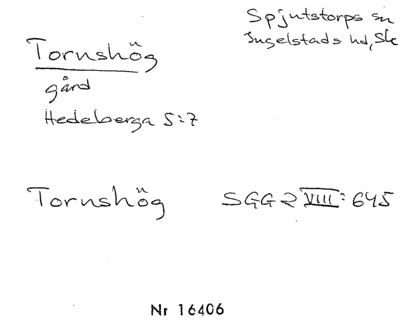 Spjutstorps sn
Ingelstads hd, Sk
Tornshög
gård
Hedeberga 5:7
Tornshög SGG 2 VIII: 645
Nr 16406